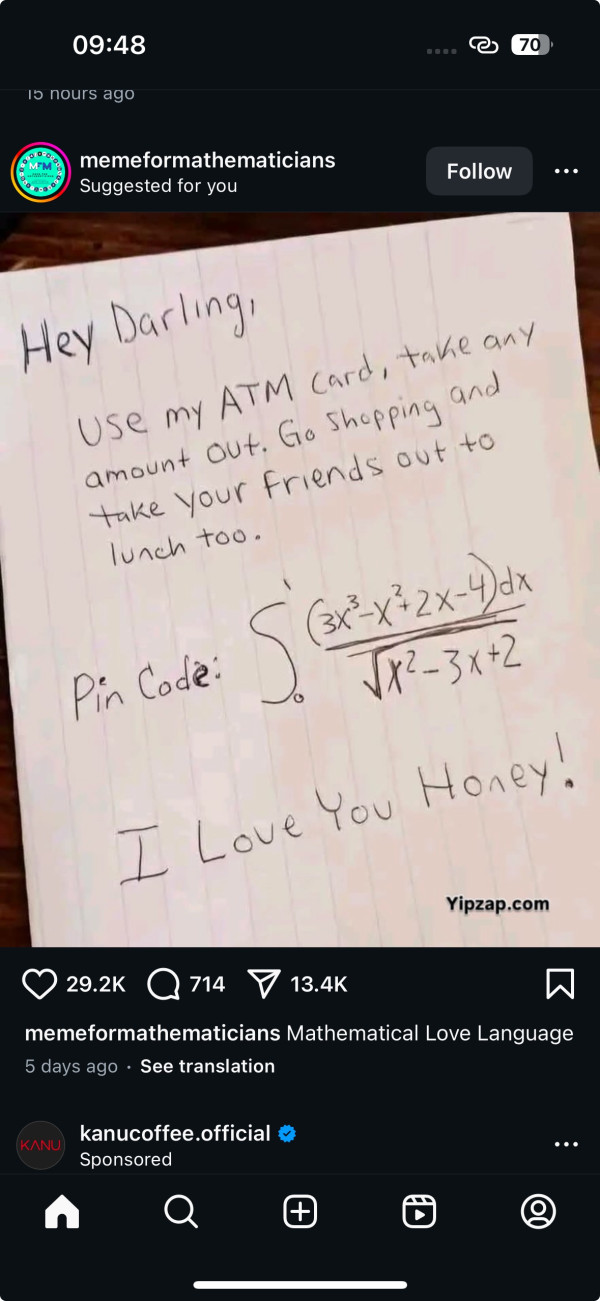 09:48
70
15 hours ago
memeformathematicians
Suggested for you
Follow
Hey Darling,
Use my ATM card, take any
amount out. Go shopping and
take your friends out to
lunch too.
Pin Code: ∫₀¹ (3x³-x²+2x-4)dx
√x²-3x+2
I Love You Honey!
Yipzap.com
29.2K 714 13.4K
memeformathematicians Mathematical Love Language
5 days ago · See translation
KANU
kanucoffee.official
Sponsored